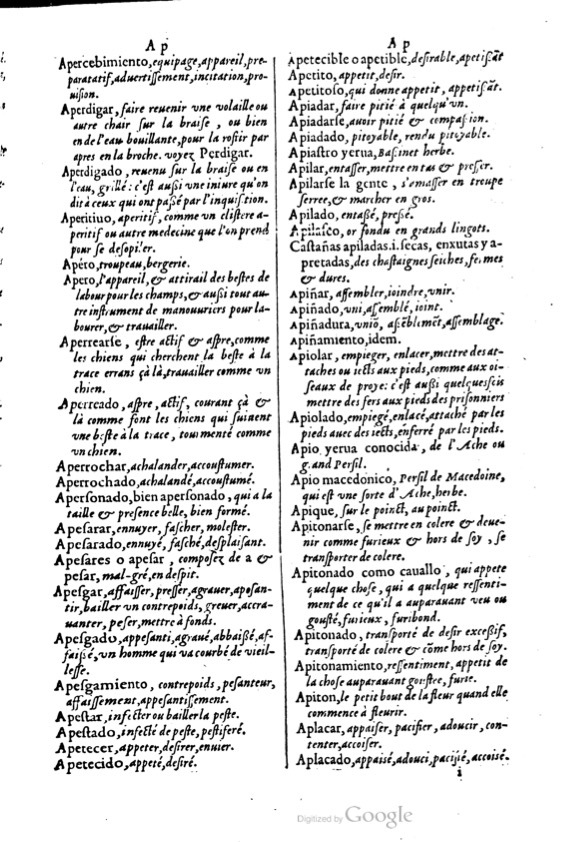 A p
Apercebimiento, equipage, appareil, pre-
paratatif, aduertissement, incitation, pro-
uision.
Aperdigar, faire reuenir vne volaille ou
autre chair sur la braise, ou bien
en de l'eau bouillante, pour la rostir par
apres en la broche. voyez Perdigar.
Aperdigado, reuenu sur la braise ou en
l'eau, grillé: c'est aussi vne iniure qu'on
dit à ceux qui ont passé par l'inquisition.
Aperitiuo, aperitif, comme vn clistere a-
peritif ou autre medecine que l'on prend
pour se desopiler.
Apéro, troupeau, bergerie.
Apero, l'appareil, & attirail des bestes de
labour pour les champs, & aussi tout au-
tre instrument de manouuriers pour la-
bourer, & trauailler.
Aperrearse, estre actif & aspre, comme
les chiens qui cherchent la beste à la
trace errans çà là, trauailler comme vn
chien.
Aperreado, aspre, actif, courant çà &
là comme font les chiens qui suiuent
vne beste à la trace, tourmenté comme
vn chien.
Aperrochar, achalander, accoustumer.
Aperrochado, achalandé, accoustumé.
Apersonado, bien apersonado, qui a la
taille & presence belle, bien formé.
Apesarar, ennuyer, fascher, molester.
Apesarado, ennuyé, fasché, desplaisant.
Apesares o apesar, composez de a &
pesar, mal-gré, en despit.
Apesgar, affaisser, presser, agrauer, aposan-
tir, bailler vn contrepoids, greuer, accra-
uanter, peser, mettre à fonds.
Apesgado, appesanti, agraué, abbaißé, af-
faißé, vn homme qui va courbé de vieil-
lesse.
Apesgamiento, contrepoids, pesanteur,
affaissement, appesantissement.
Apestar, infecter ou bailler la peste.
Apestado, infecté de peste, pestiferé.
Apetecer, appeter, desirer, enuier.
Apetecido, appeté, desiré.
A p
Apetecible o apetible, desirable, apetissāt
Apetito, appetit, desir.
Apetitoso, qui donne appetit, appetissāt.
Apiadar, faire pitié à quelqu'vn.
Apiadarse, auoir pitié & compaßion.
Apiadado, pitoyable, rendu pitoyable.
Apiastro yerua, Baßinet herbe.
Apilar, entasser, mettre en tas & presser.
Apilarse la gente, s'emasser en troupe
serree, & marcher en gros.
Apilado, entaßé, preßé.
Apilasco, or fondu en grands lingots.
Castañas apiladas.i.secas, enxutas y a-
pretadas, des chastaignes seiches, fermes
& dures.
Apiñar, assembler, ioindre, vnir.
Apiñado, vni, assemblé, ioint.
Apiñadura, vniō, assēblemēt, assemblage.
Apiñamiento, idem.
Apiolar, empieger, enlacer, mettre des at-
taches ou iects aux pieds, comme aux oi-
seaux de proye: c'est aussi quelquesfois
mettre des fers aux pieds des prisonniers
Apiolado, empiegé, enlacé, attaché par les
pieds auec des iects, enferré par les pieds.
Apio yerua conocida, de l'Ache ou
grand Persil.
Apio macedonico, Persil de Macedoine,
qui est vne sorte d'Ache, herbe.
Apique, sur le poinct, au poinct.
Apitonarse, se mettre en colere & deue-
nir comme furieux & hors de soy, se
transporter de colere.
Apitonado como cauallo, qui appete
quelque chose, qui a quelque ressenti-
ment de ce qu'il a auparauant veu ou
gousté, furieux, furibond.
Apitonado, transporté de desir exceßif,
transporté de colere & cōme hors de soy.
Apitonamiento, ressentiment, appetit de
la chose auparauant goustee, furie.
Apiton, le petit bout de la fleur quand elle
commence à fleurir.
Aplacar, appaiser, pacifier, adoucir, con-
tenter, accoiser.
Aplacado, appaisé, adouci, pacifié, accoisé.
i
Digitized by Google